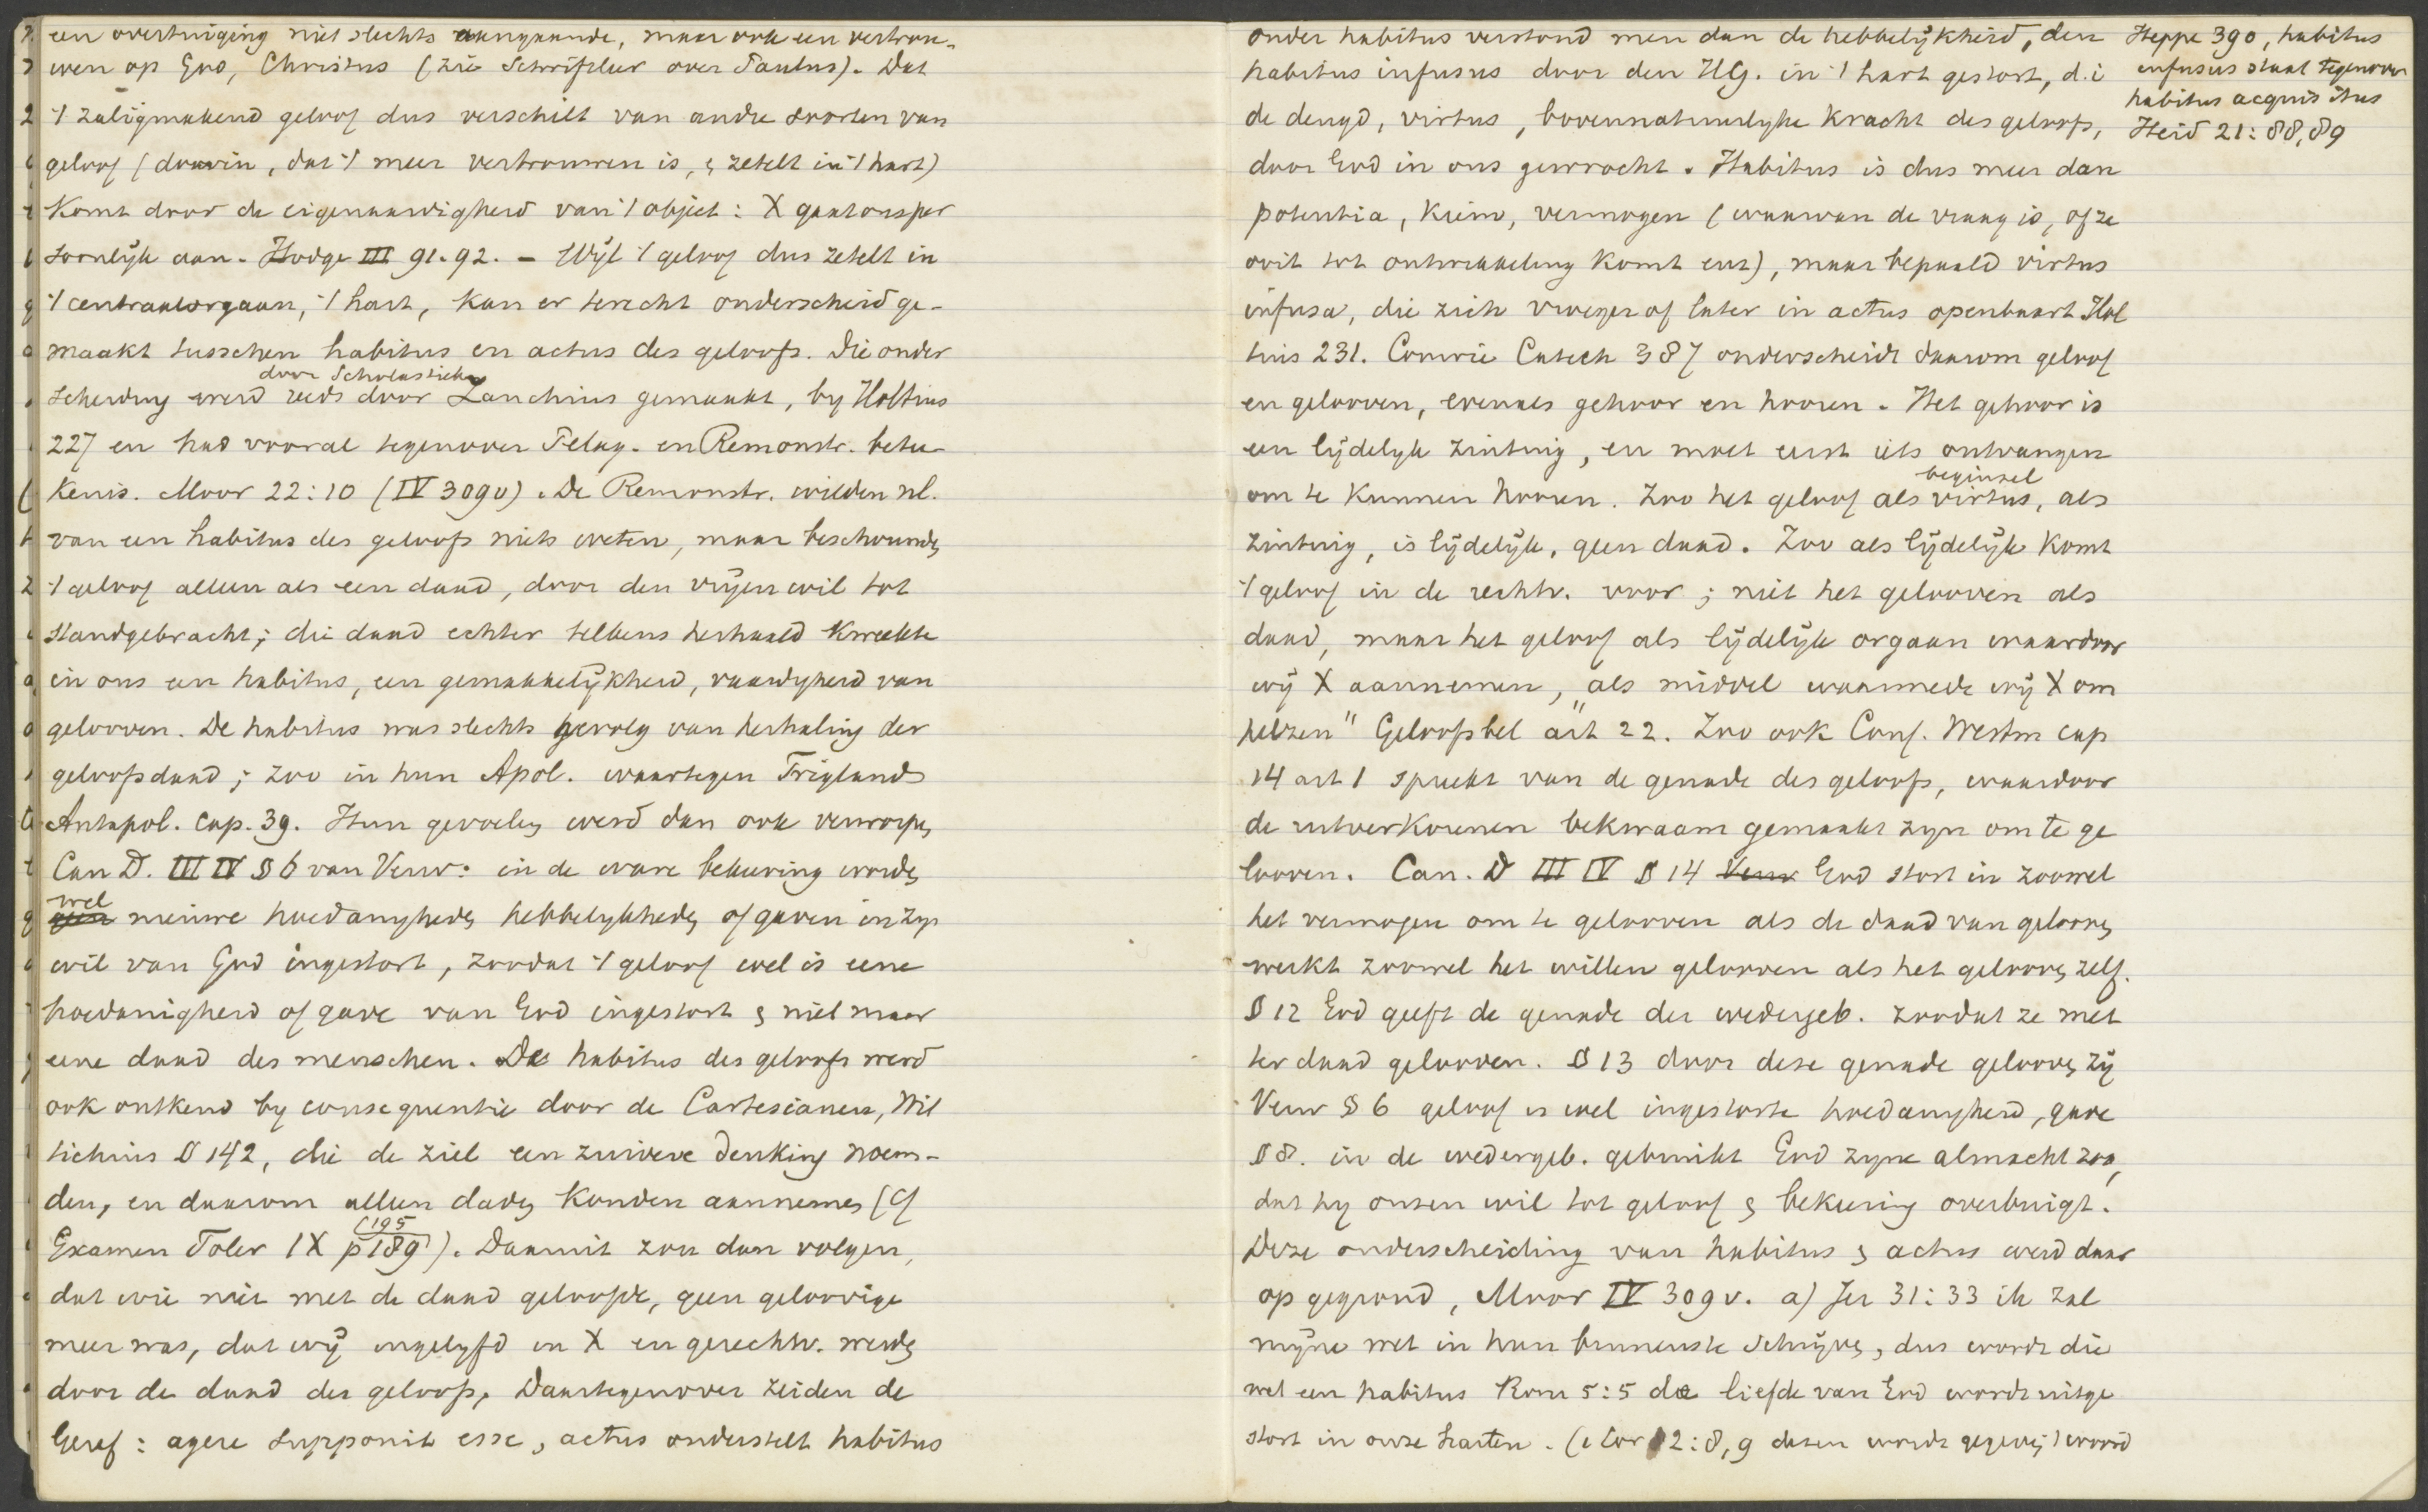 een overtuiging niet slechts aangaande, maar ook een vertrou-
wen op God, Christus (zie Schriftleer over Paulus). Dat
't zaligmakend geloof dus verschilt van andre soorten van
geloof (daarin, dat 't meer vertrouwen is, & zetelt in 't hart)
komt door de eigenaardigheid van 't object: X gaat ons per
soonlijk aan. Hodge III 91.92. – Wijl 't geloof dus zetelt in
't centraalorgaan, 't hart, kan er terecht onderscheid ge-
maakt tusschen habitus en actus des geloofs. Die onder
door Scholastieken
scheiding werd reeds door Zanchius gemaakt, by Holtius
227 en had vooral tegenover Pelag. en Remonstr. betee
kenis. Moor 22:10 (IV 309v). De Remonstr. wilden nl.
van een habitus des geloofs niets weten, maar beschouwden
't geloof alleen als een daad, door den vrijen wil tot
standgebracht; die daad echter telkens herhaald kweekte
in ons een habitus, een gemakkelijkheid, vaardigheid van
gelooven. De habitus was slechts gevolg van herhaling der
geloofsdaad; zoo in hun Apol. waartegen Triglands
Antapol. cap. 39. Hun gevoelen werd dan ook verworpen
Can D. III IV § 6 van Verw: in de ware bekeering worden
wel
geen nieuwe hoedanigheden hebbelykheden of gaven in zyn
wil van God ingestort, zoodat 't geloof wel is eene
hoedanigheid of gave van God ingestort & niet maar
eene daad des menschen. De habitus des geloofs werd
ook ontkend by consequentie door de Cartesianen, Wit
tichius § 142, die de ziel een zuivere denking noem-
den, en daarom alleen daden konden aannemen (cf
(195
Examen Toler IX p 189). Daaruit zou dan volgen,
dat wie niet met de daad geloofde, geen geloovige
meer was, dat wij ingelyfd in X en gerechtv. werden
door de daad des geloofs. Daartegenover zeiden de
Geref: agere supponit esse, actus onderstelt habitus
onder habitus verstond men dan de hebbelijkheid, den
habitus infusus door den HG. in 't hart gestort, d.i
de deugd, virtus, bovennatuurlyke kracht des geloofs,
door God in ons gewrocht. Habitus is dus meer dan
potentia, kiem, vermogen (waarvan de vraag is, of ze
ooit tot ontwikkeling komt enz), maar bepaald virtus
infusa, die zich vroeger of later in actus openbaart Hol
tius 231. Comrie Catech 387 onderscheidt daarom geloof
en gelooven, evenals gehoor en hooren. Het gehoor is
een lijdelyk zintuig, en moet eerst iets ontvangen
beginsel
om te kunnen hooren. Zoo het geloof als virtus, als
zintuig, is lijdelijk, geen daad. Zoo als lijdelijk komt
't geloof in de rechtv. voor; niet het gelooven als
daad, maar het geloof als lijdelijk orgaan waardoor
wij X aannemen, "als middel waarmede wij X om
helzen" Geloofsbel art 22. Zoo ook Conf. Westm cap
14 art 1 spreekt van de genade des geloofs, waardoor
de uitverkorenen bekwaam gemaakt zyn om te ge
looven. Can. D III IV § 14 Verw God stort in zoowel
het vermogen om te gelooven als de daad van gelooven
werkt zoowel het willen gelooven als het gelooven zelf.
§ 12 God geeft de genade der wedergeb. zoodat ze met
ter daad gelooven. § 13 door deze genade gelooven zij
Verw § 6 geloof is wel ingestorte hoedanigheid, gave
§ 8. in de wedergeb. gebruikt God zyne almacht zoo,
dat hy onzen wil tot geloof & bekeering overbuigt.
Deze onderscheiding van habitus & actus werd daar
op gegrond, Moor IV 309v. a) Jer 31:33 ik zal
mijne wet in hun binnenste schrijven, dus wordt die
wet een habitus Rom 5:5 de liefde van God wordt uitge
stort in onze harten. (1 Cor 12:8,9 dezen wordt gegeven 't woord
Heppe 390, habitus
infusus staat tegenover
habitus acquisitus
Heid 21:88,89